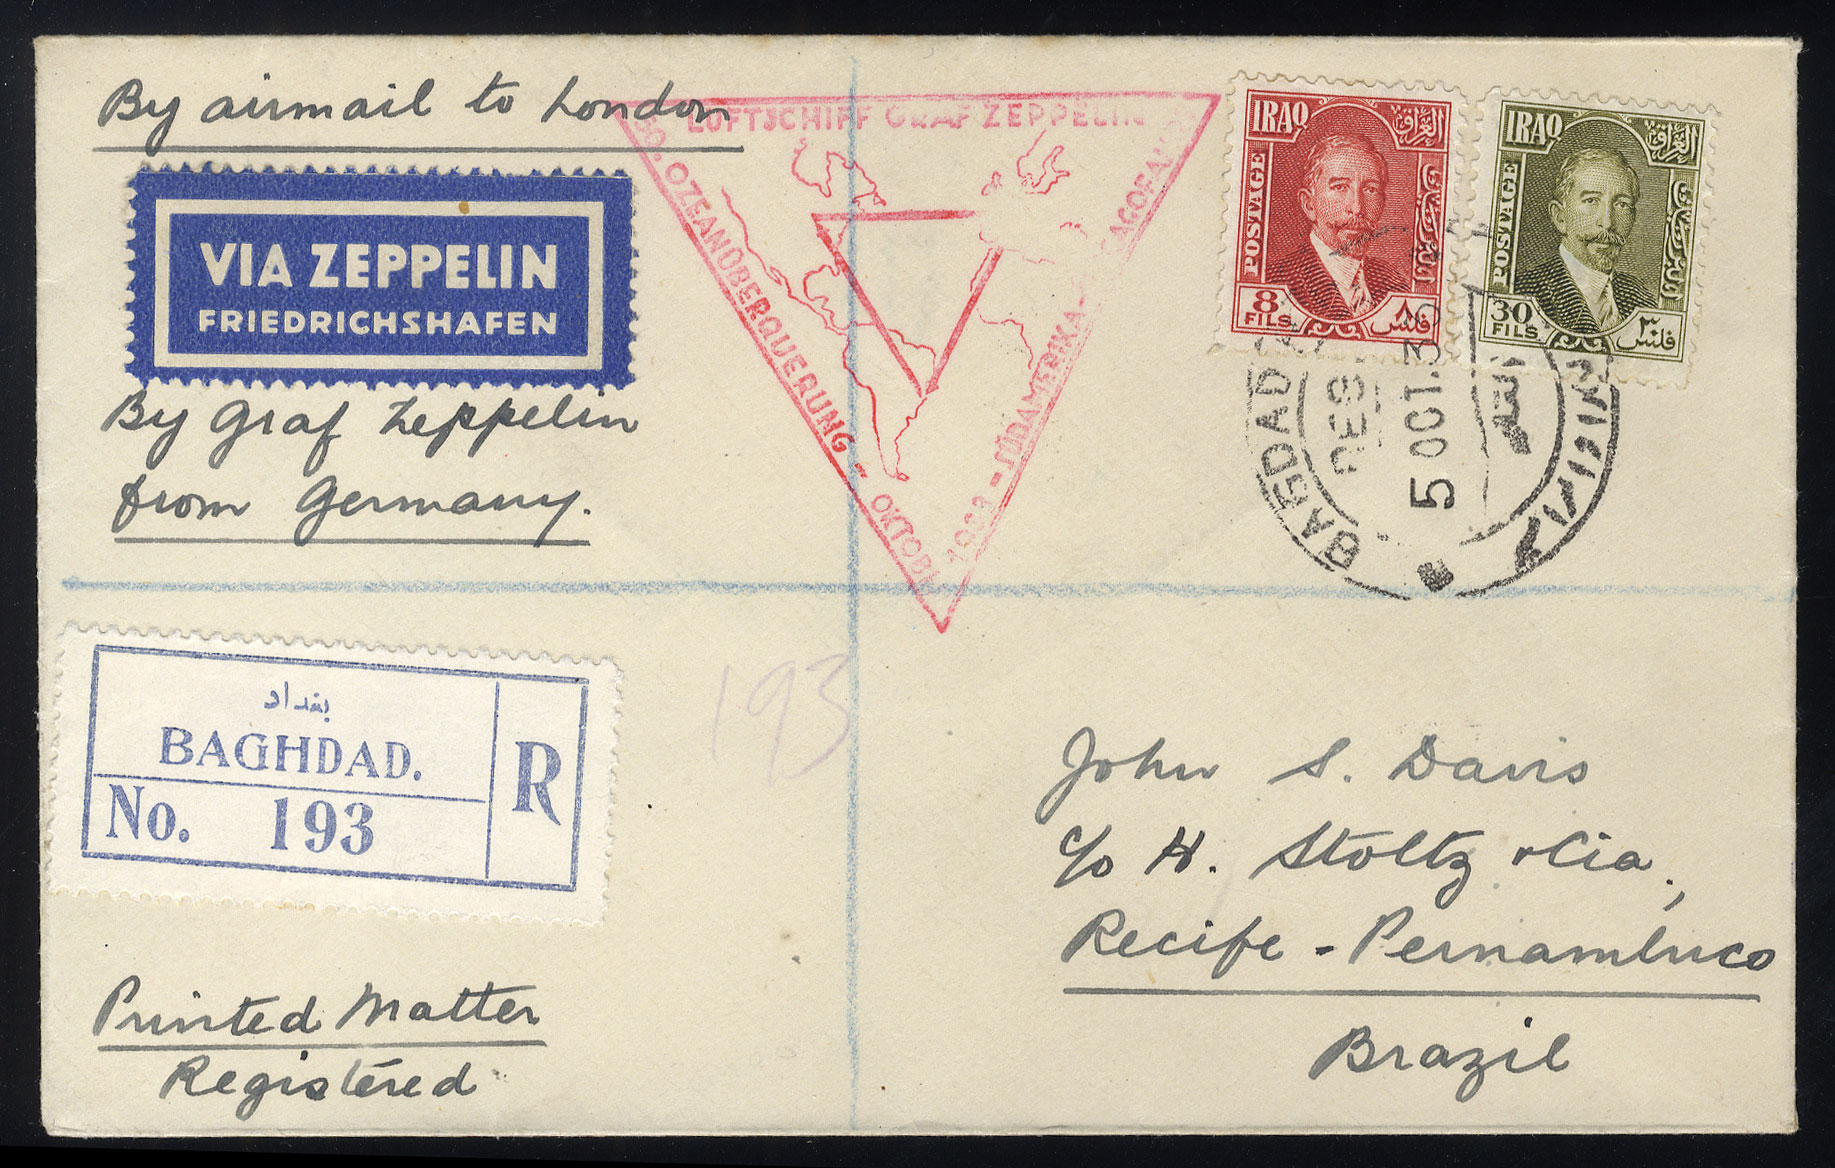 By airmail to London
VIA ZEPPELIN
FRIEDRICHSHAFEN
By Graf Zeppelin
from Germany.
LUFTSCHIFF GRAF ZEPPELIN
50. OZEANÜBERQUERUNG - OKTOBER
1933 - SÜDAMERIKA-
IRAQ العراق
POSTAGE
8 ٨
FILS فلس
IRAQ العراق
POSTAGE
30 ٣٠
FILS فلس
BAGHDAD
5 OCT. 33
بغداد
BAGHDAD.
No. 193
R
193
John S. Davis
c/o H. Stoltz & Cia.,
Recife - Pernambuco
Brazil
Printed Matter
Registered